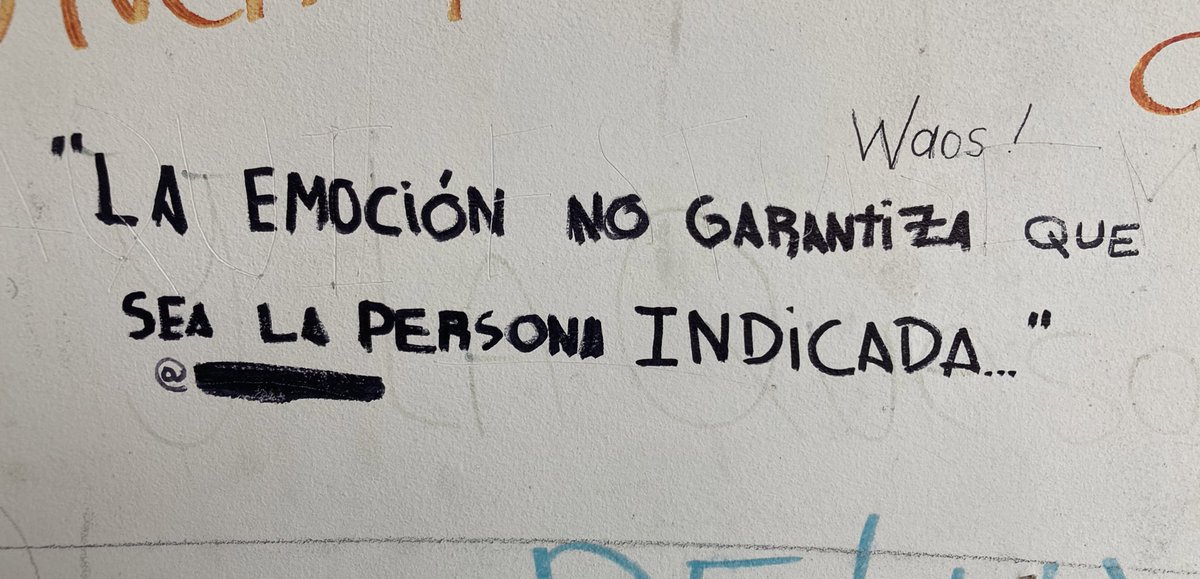 Waos!
"LA EMOCIÓN NO GARANTIZA QUE
SEA LA PERSONA INDICADA..."
@